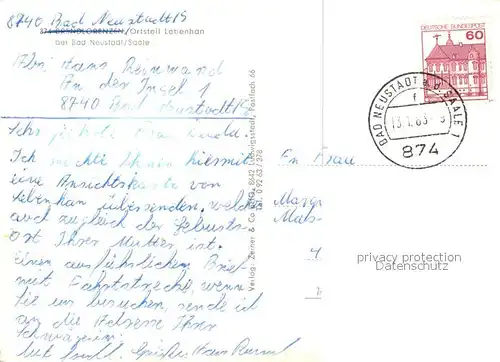 8740 Bad Neustadt/S
874 BRENDLORENZEN/Ortsteil Lebenhan
bei Bad Neustadt/Saale
Abs. Hans Reinwand
An der Insel 1
8740 Bad Neustadt/S
Sehr geehrte Frau
Ich möchte Ihnen hiermit
eine Ansichtskarte von
Lebenhan übersenden, welches
auch zugleich der Geburts-
ort Ihrer Mutter ist.
Einen ausführlichen Brief
mit Fahrtstrecke, wenn
Sie uns besuchen, sende ich
an die Adresse Ihrer
Schwägerin.
Mit freundl. Grüßen Hans
Verlag: Zeiner & Co. 8642 Ludwigsstadt, Postfach 66
Tel. 0 92 63 / 378
DEUTSCHE BUNDESPOST
60
BAD NEUSTADT a d SAALE 1
f
13.1.83
874
An Frau
privacy protection
Datenschutz